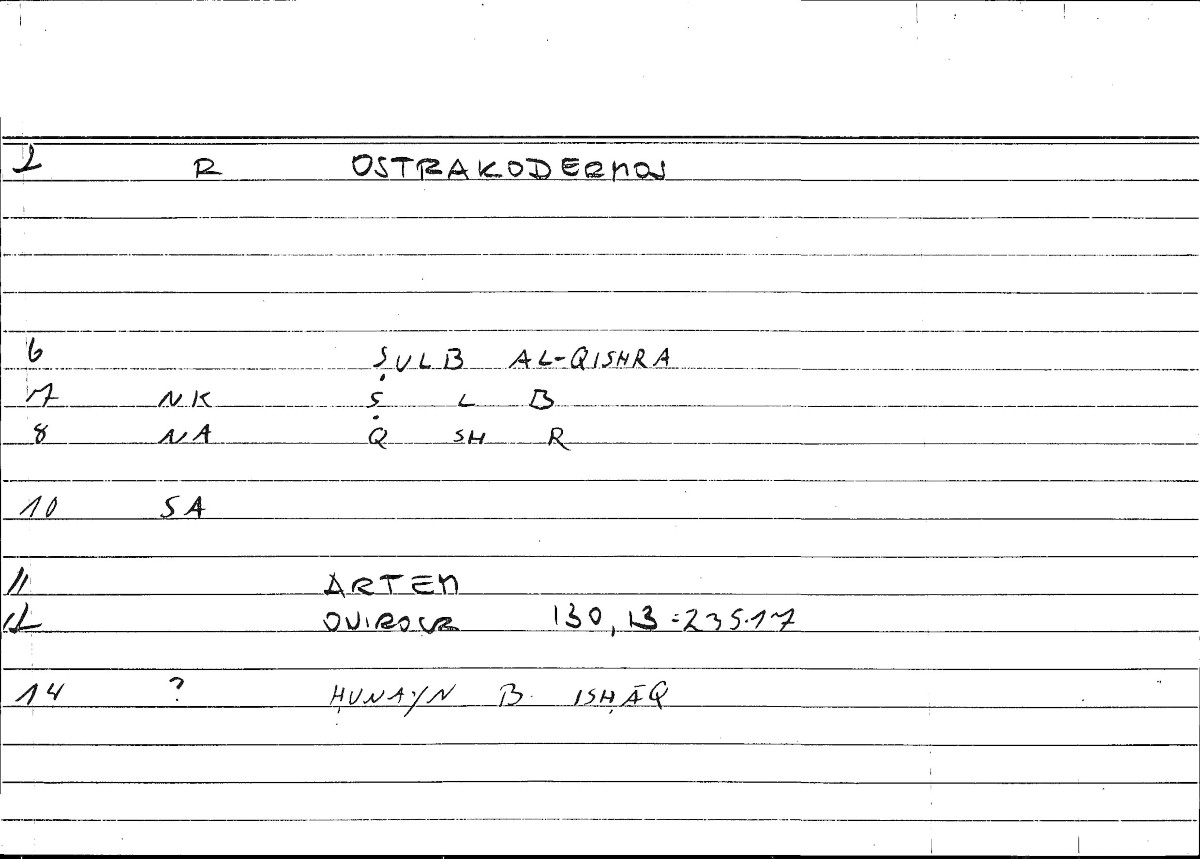 2 R OSTRAKODERMOS
6 ṢULB AL-QISHRA
7 NK Ṣ L B
8 NA Q SH R
10 SA
11 ARTEM
12 ONIROCR 130, 13 = 235.17
14 ? ḤUNAYN B. ISḤĀQ